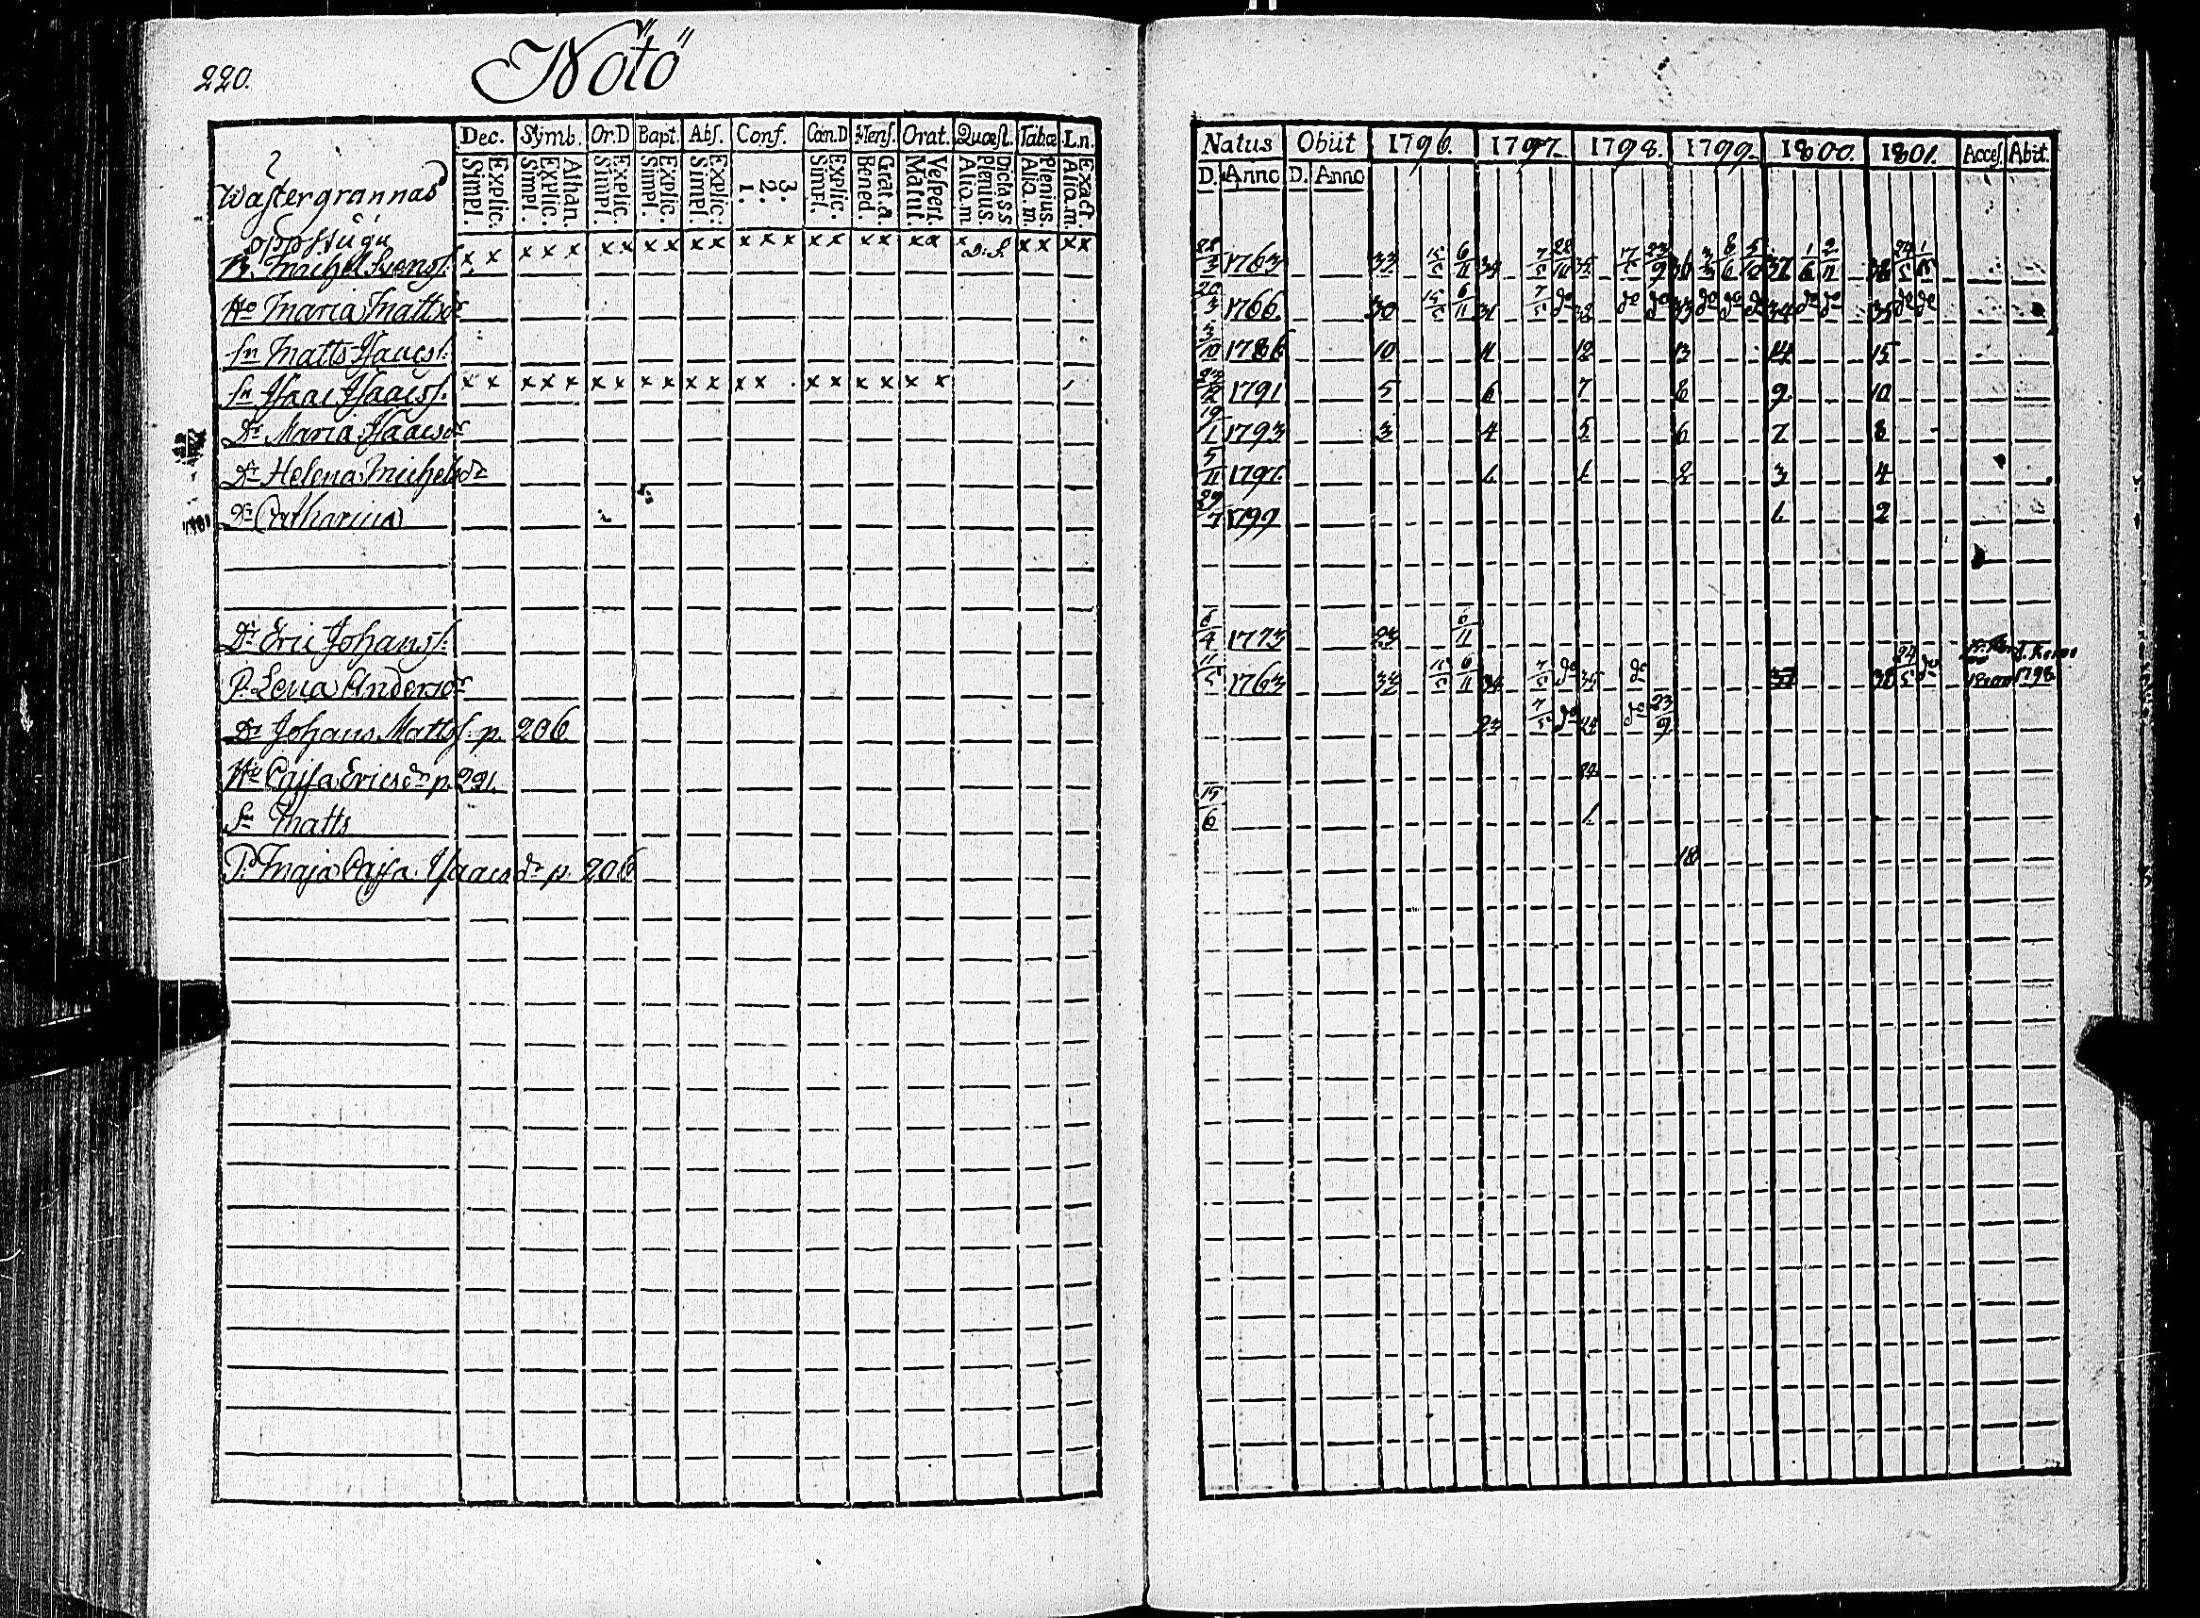 220.
Nötö
Dec. Symb. Or.D Bapt. Abs. Conf. Cœn.D Mens. Orat. Quæst. Tabæ Ln.
Simpl. Explic. Simpl. Explic. Athan. Simpl. Explic. Simpl. Explic. Simpl. Explic. 1. 2. 3. Simpl. Explic. Bened. Grat.a. Matut. Vespert. Alia.m. Plenius. Dicta ss Alia.m. Plenius. Alia.m. Exact
2
Wästergrannas
oppstugu
Natus Obiit 1796. 1797. 1798. 1799. 1800. 1801. Access. Abit.
D. Anno D. Anno
B. Michel Svenss: x x x x x x x x x x x x x x x x x x x x x x x x x 1763 33 15/5 6/11 34 7/5 35 17/5 23/9 36 37 38 24/5
Ho Maria Mattsdr 20/3 1766 30 15/5 6/11 31 7/5 do 32 do do 33 do do do 34 do do 35 do do
Sn Matts Isaacs: 10 1786 10 11 12 13 14 15
Sn Isaac Isaacss. x x x x x x x x x x x x x x x x x x x x 1791 5 6 7 8 9 10
Dr Maria Isaacsdr 19/1 1793 3 4 5 6 7 8
Dr Helena Michelsdr 5/11 1797. 1. 1 2 3 4
Dr Catharina 29/7 1799 1. 2
Dr Eric Johanss: 6/4 1773 23 6/11
P. Lena Andersdr 11/5 1763 33 15/5 6/11 34 7/5 do 35 do 37 38 24/5 do 1800 1798
Dr Johans Mattss p. 206. 23 7/5 do 24 do 23/9
Ho Cajsa Ericsdr p. 221. 24
Sn Matts 15/6 1.
P. Maja Cajsa Isaacsdr p. 206 18